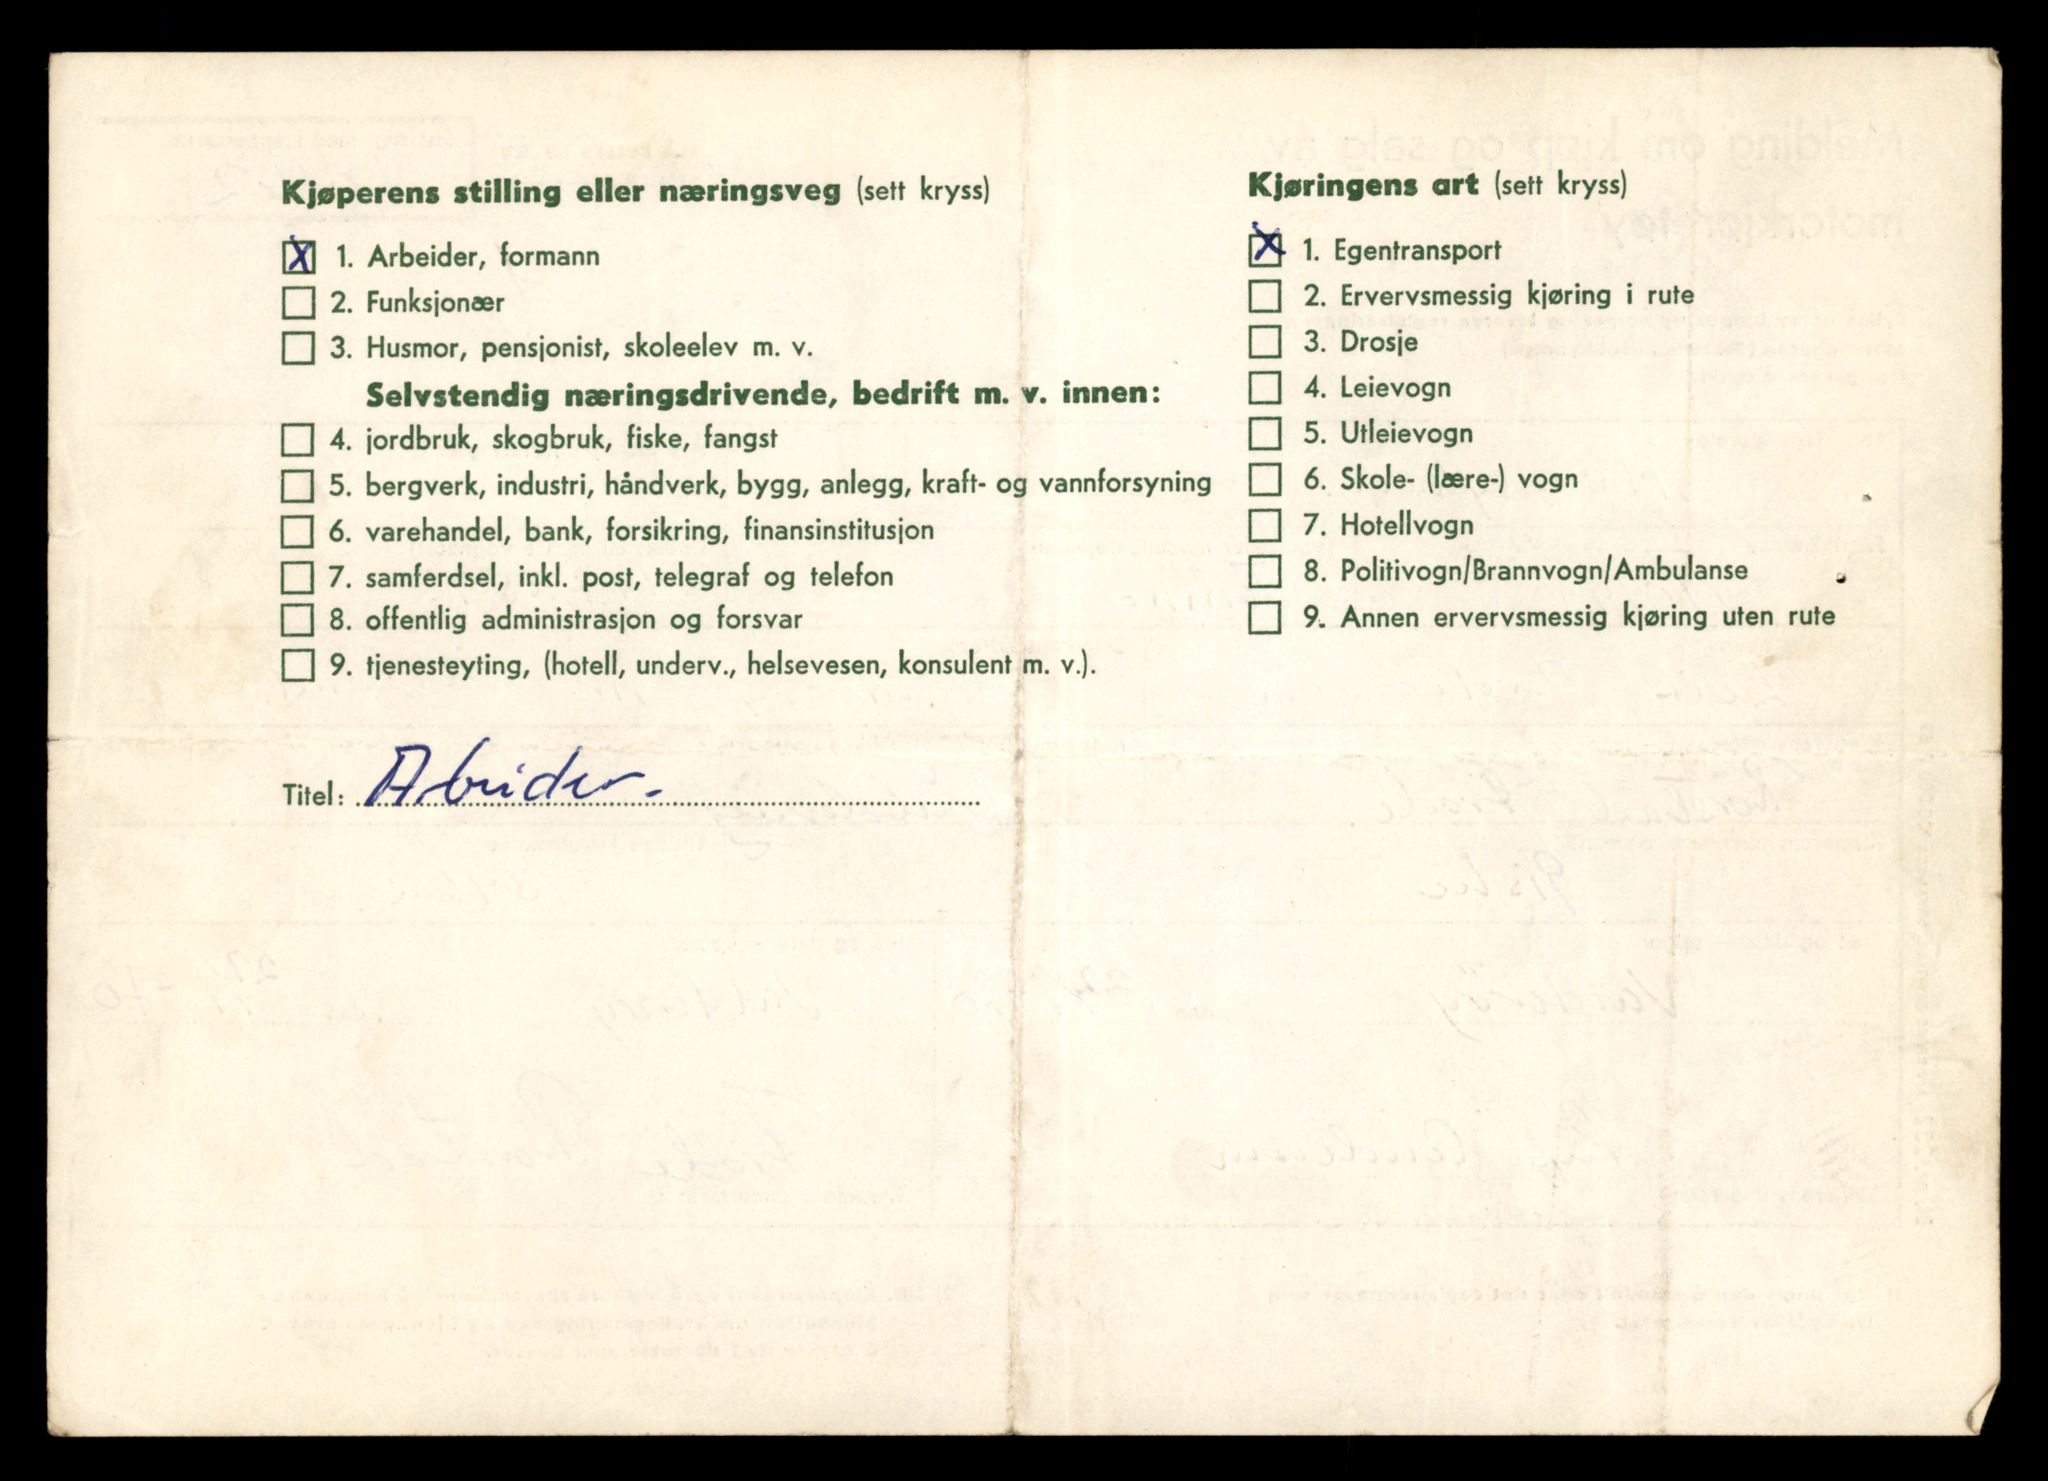 Kjøperens stilling eller næringsveg (sett kryss)
X 1. Arbeider, formann
2. Funksjonær
3. Husmor, pensjonist, skoleelev m. v.
Selvstendig næringsdrivende, bedrift m. v. innen:
4. jordbruk, skogbruk, fiske, fangst
5. bergverk, industri, håndverk, bygg, anlegg, kraft- og vannforsyning
6. varehandel, bank, forsikring, finansinstitusjon
7. samferdsel, inkl. post, telegraf og telefon
8. offentlig administrasjon og forsvar
9. tjenesteyting, (hotell, underv., helsevesen, konsulent m. v.).
Titel: Arbeider.
Kjøringens art (sett kryss)
X 1. Egentransport
2. Ervervsmessig kjøring i rute
3. Drosje
4. Leievogn
5. Utleievogn
6. Skole- (lære-) vogn
7. Hotellvogn
8. Politivogn/Brannvogn/Ambulanse
9. Annen ervervsmessig kjøring uten rute